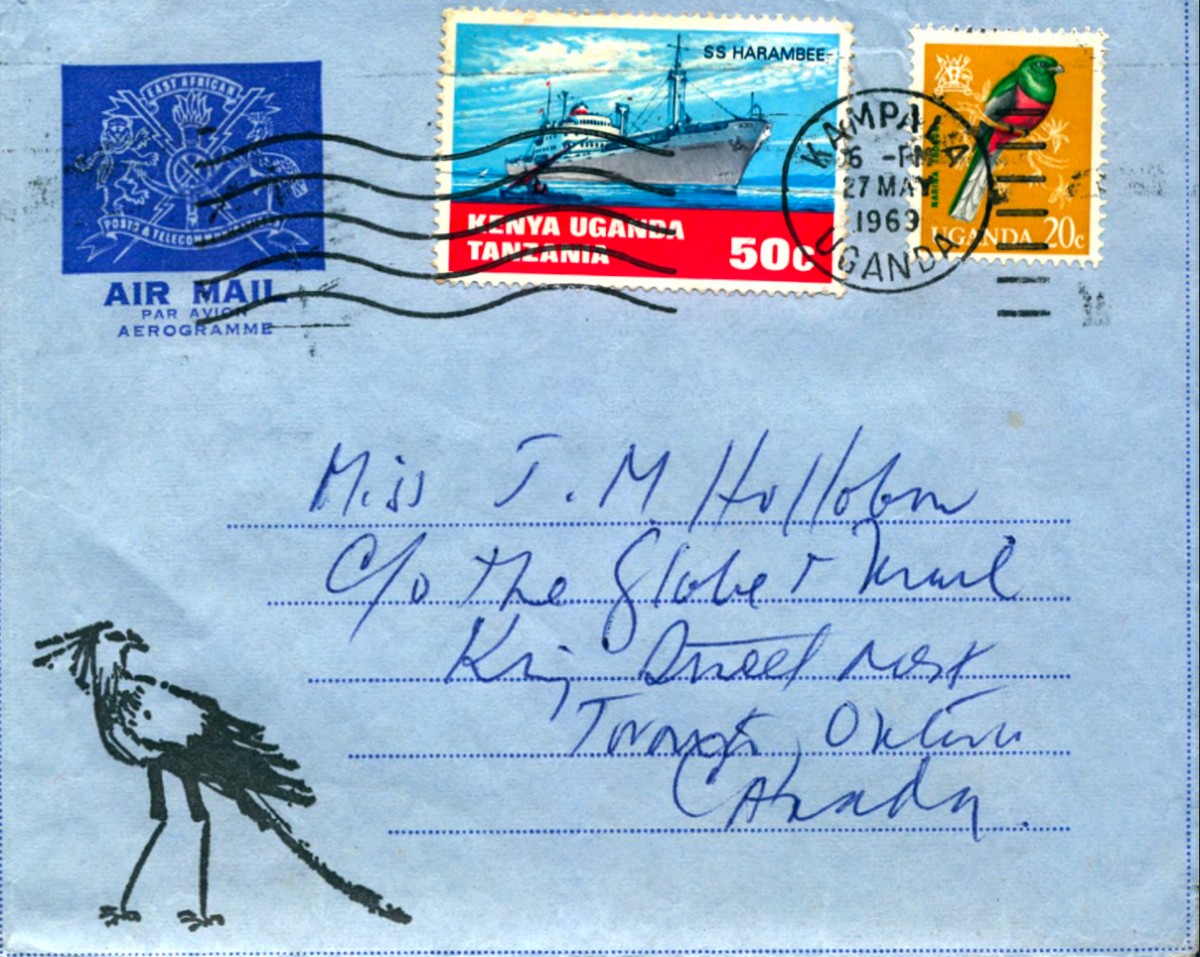 EAST AFRICAN
POSTS & TELECOMMUNICATIONS
AIR MAIL
PAR AVION
AEROGRAMME
SS HARAMBEE
KENYA UGANDA
TANZANIA
50c
KAMPALA
6 -PM
27 MAY
1969
UGANDA
NARINA TROGON
UGANDA 20c
Miss J. M Hollobon
c/o The Globe & Mail
King Street West
Toronto, Ontario
Canada.